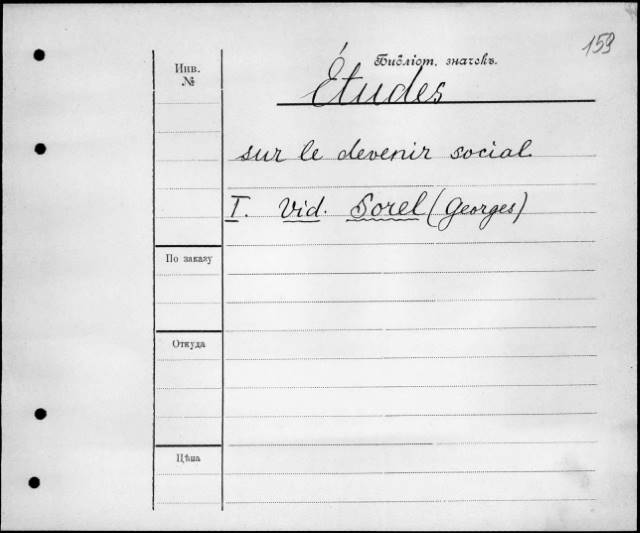 159
Библіот. значокъ.
Инв.
№
Études
sur le devenir social.
I. Vid. Sorel (Georges)
По заказу
Откуда
Цѣна